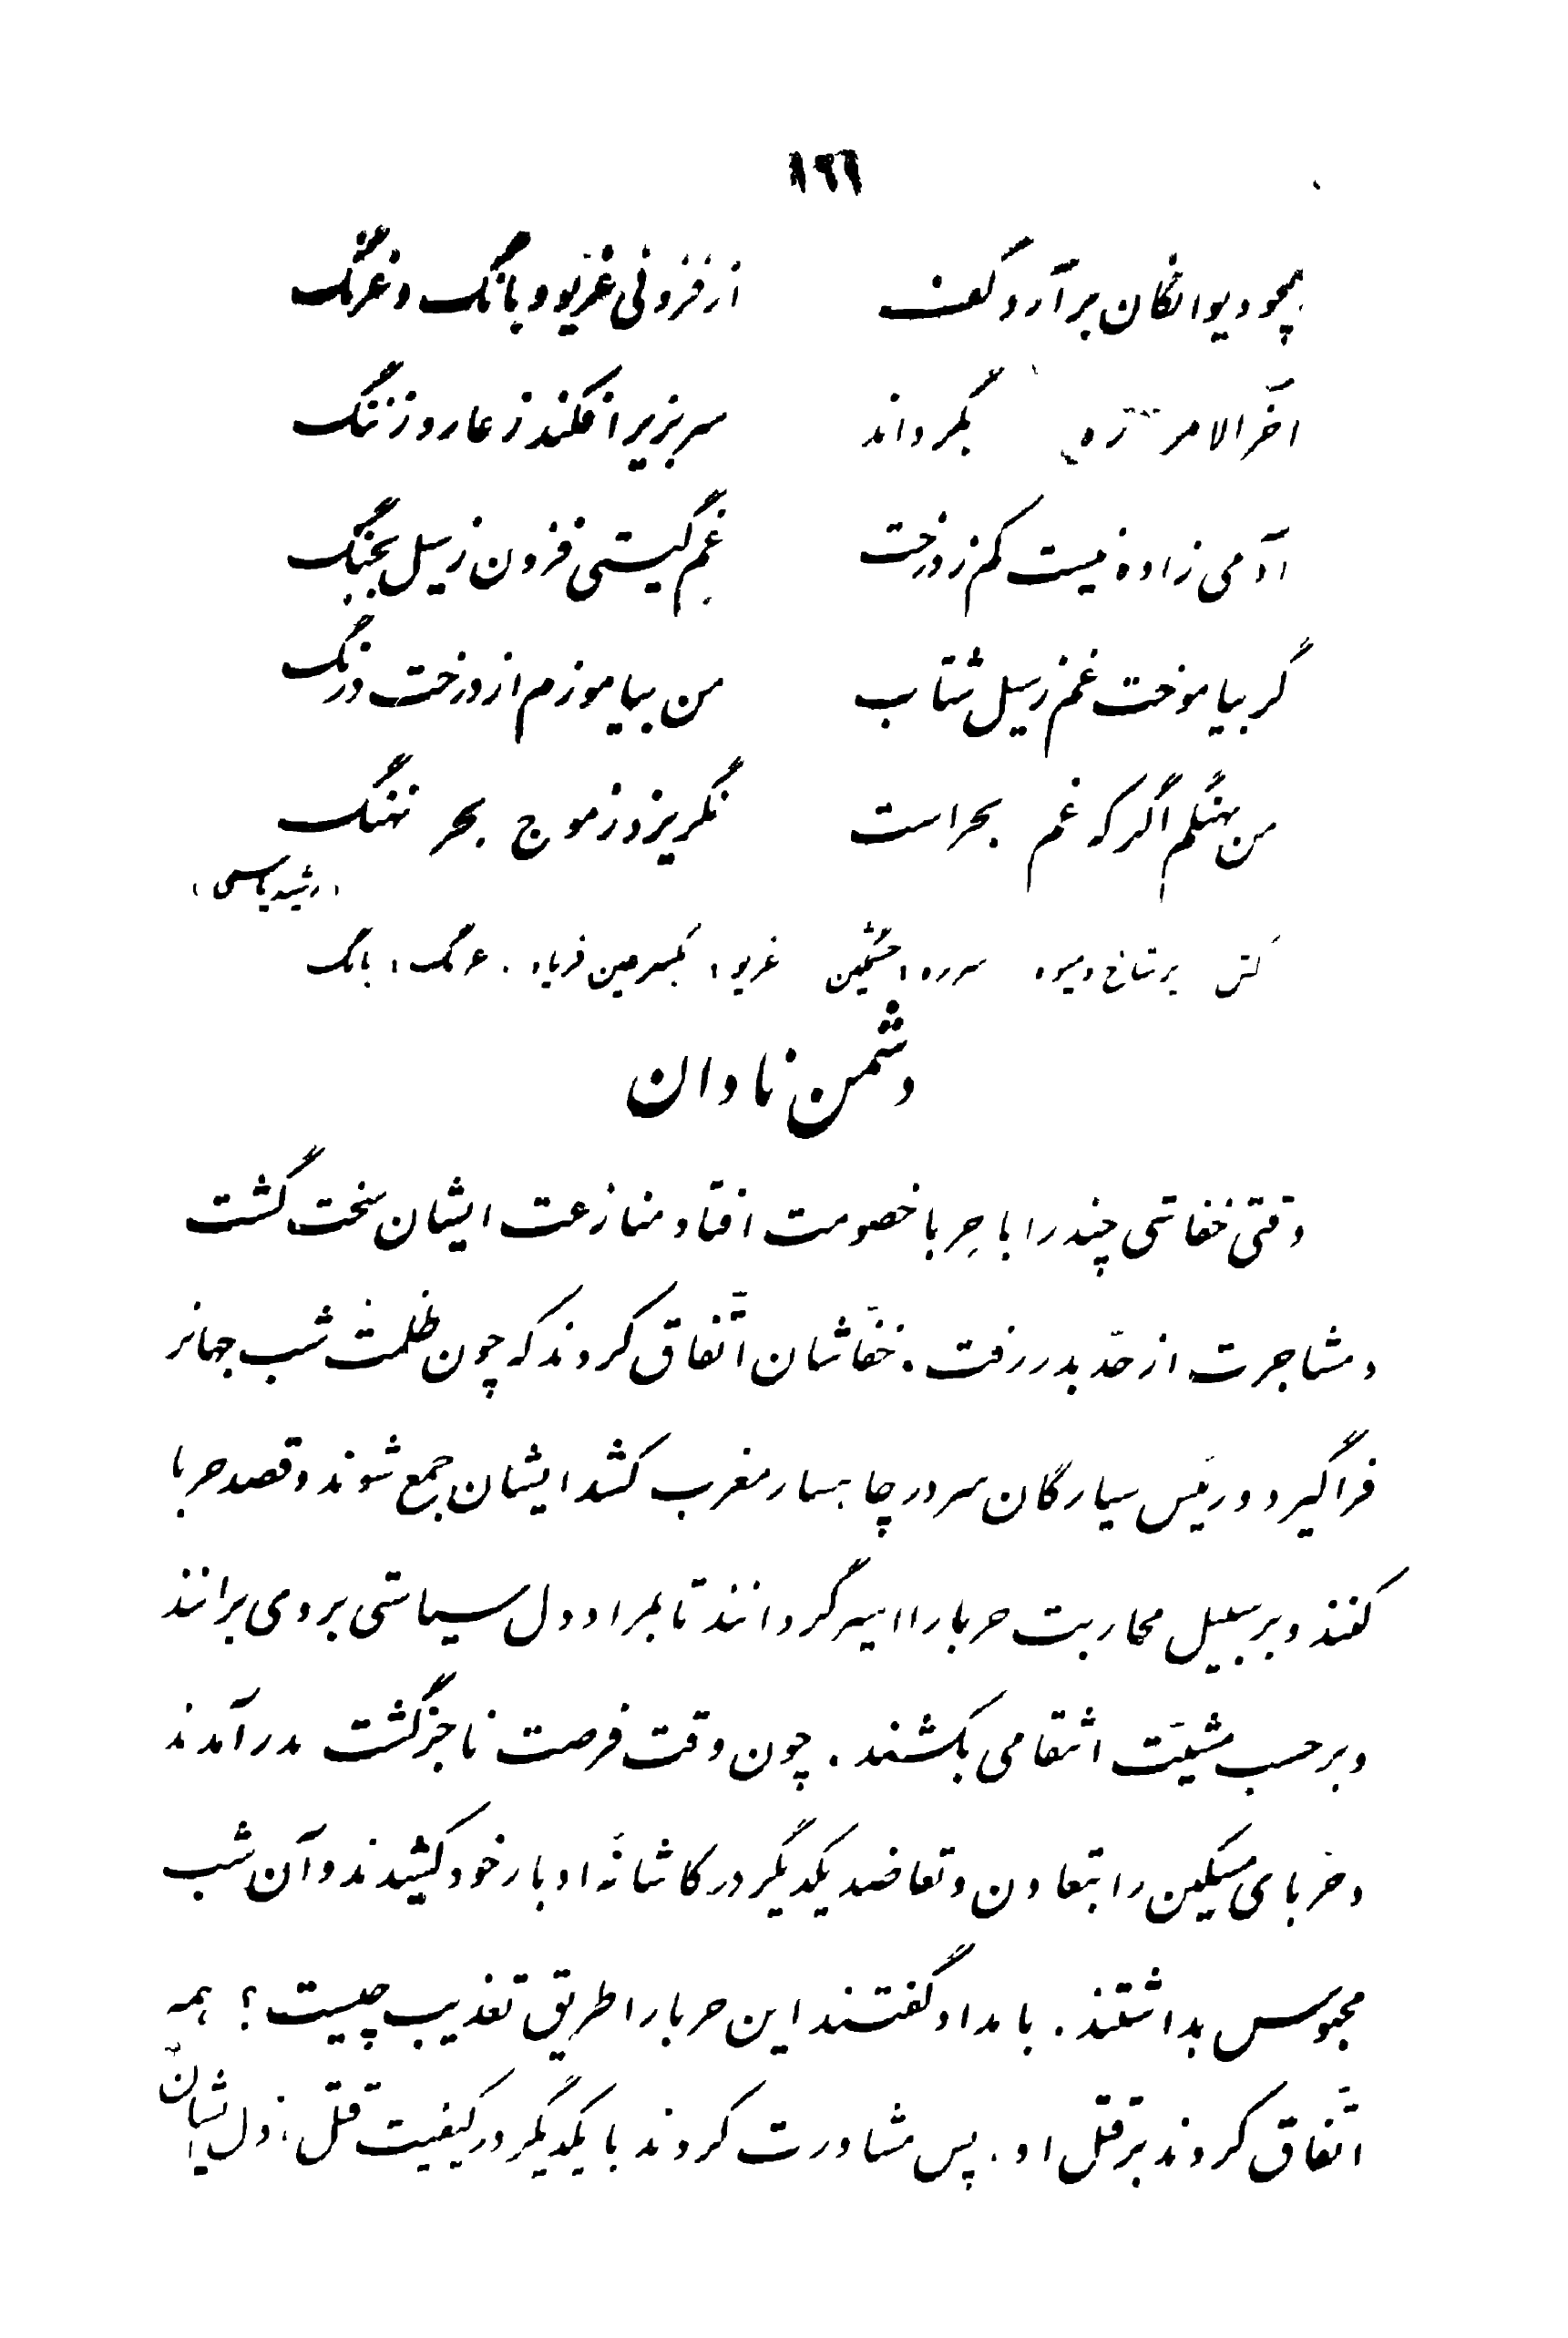 ١٩٦
همچو دیوانگان برآرد کف از فزونی غریو و بانگ و غرنگ
آخرالامر ره بگرداند سر بزیر افکند ز عار و ز ننگ
آدمی زاده نیست کم ز درخت غم گیتی فزون ز سیل بجنگ
گر بیاموخت غم ز سیل شتاب من بیاموزم از درخت درنگ
من نهنگم اگر که غم بحر است نگریزد ز موج بحر نهنگ
(رشید یاسمی)
کش پر شاخ و میوه خشمگین غریو: فریاد. غرنگ: بانگ
دشمن نادان
وقتی خفاشی چند را با حِربا خصومت افتاد و منازعت ایشان سخت گشت
و مشاجرت از حدّ بدر رفت. خفّاشان اتّفاق کردند که چون ظلمت شب جهانرا
فراگیرد و رئیس سیارگان سر در چاهسار مغرب کشد ایشان جمع شوند و قصد حربا
کنند و بر سبیل محاربت حربا را اسیر گردانند تا بمراد دل سیاستی بر وی برانند
و بر حسب مشیّت انتقامی بکشند. چون وقت فرصت ناجز گشت بدر آمدند
و حربای مسکین را بتعاون و تعاضد یکدیگر در کاشانهٔ ادبار خود کشیدند و آن شب
محبوس بداشتند. بامداد گفتند این حربا را طریق تعذیب چیست؟ همه
اتّفاق کردند بر قتل او. پس مشاورت کردند با یکدیگر در کیفیت قتل،